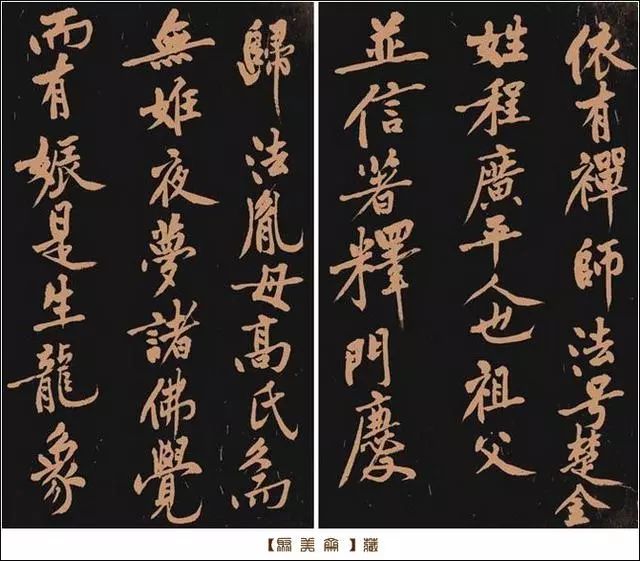 依有禪師法号楚金
姓程廣平人也祖父
並信著釋門慶
歸法胤母高氏久而
無姙夜夢諸佛覺
而有娠是生龍象
【美】藏